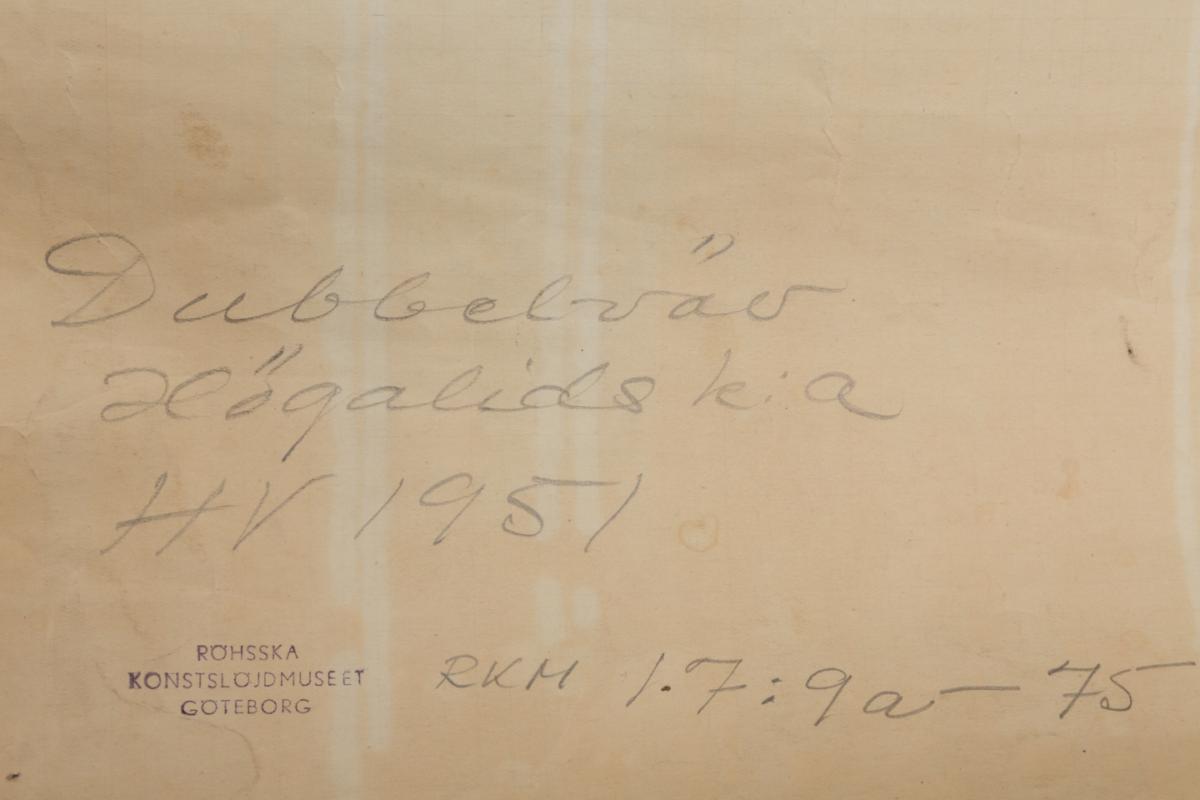 Dubbelväv
Högalids k:a
HV 1951
RÖHSSKA
KONSTSLÖJDMUSEET
GÖTEBORG
RKM 1.7:9a-75